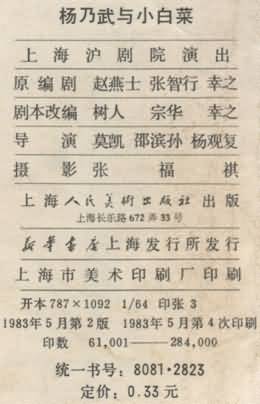 杨乃武与小白菜
上海沪剧院演出
原编剧 赵燕士 张智行 幸之
剧本改编 树人 宗华 幸之
导演 莫凯 邵滨孙 杨观复
摄影 张福祺
上海人民美术出版社出版
上海长乐路672弄33号
新华书店上海发行所发行
上海市美术印刷厂印刷
开本787×1092 1/64 印张3
1983年5月第2版 1983年5月第4次印刷
印数 61,001——284,000
统一书号：8081·2823
定价：0.33元